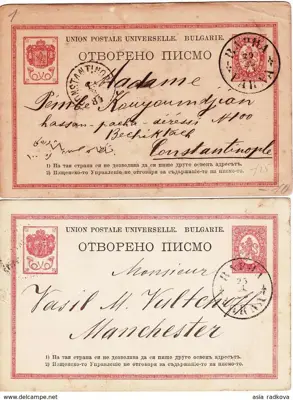 UNION POSTALE UNIVERSELLE. BULGARIE.
ОТВОРЕНО ПИСМО
CONSTANTINOPLE
ВАРНА
VARNA
Madame
Kouyoumdjian
hassan-pacha-déressi N100
Bechiktach
Constantinople
1) На тая страна не е дозволено да се пише друго освенъ адресътъ.
2) Пощенско-то Управление не отговаря за съдържание-то на писмо-то.
UNION POSTALE UNIVERSELLE. BULGARIE.
ОТВОРЕНО ПИСМО
Monsieur
Vasil M.
Manchester
1) На тая страна не е дозволено да се пише друго освенъ адресътъ.
2) Пощенско-то Управление не отговаря за съдържание-то на писмо-то.
delcampe.net
asia radkova